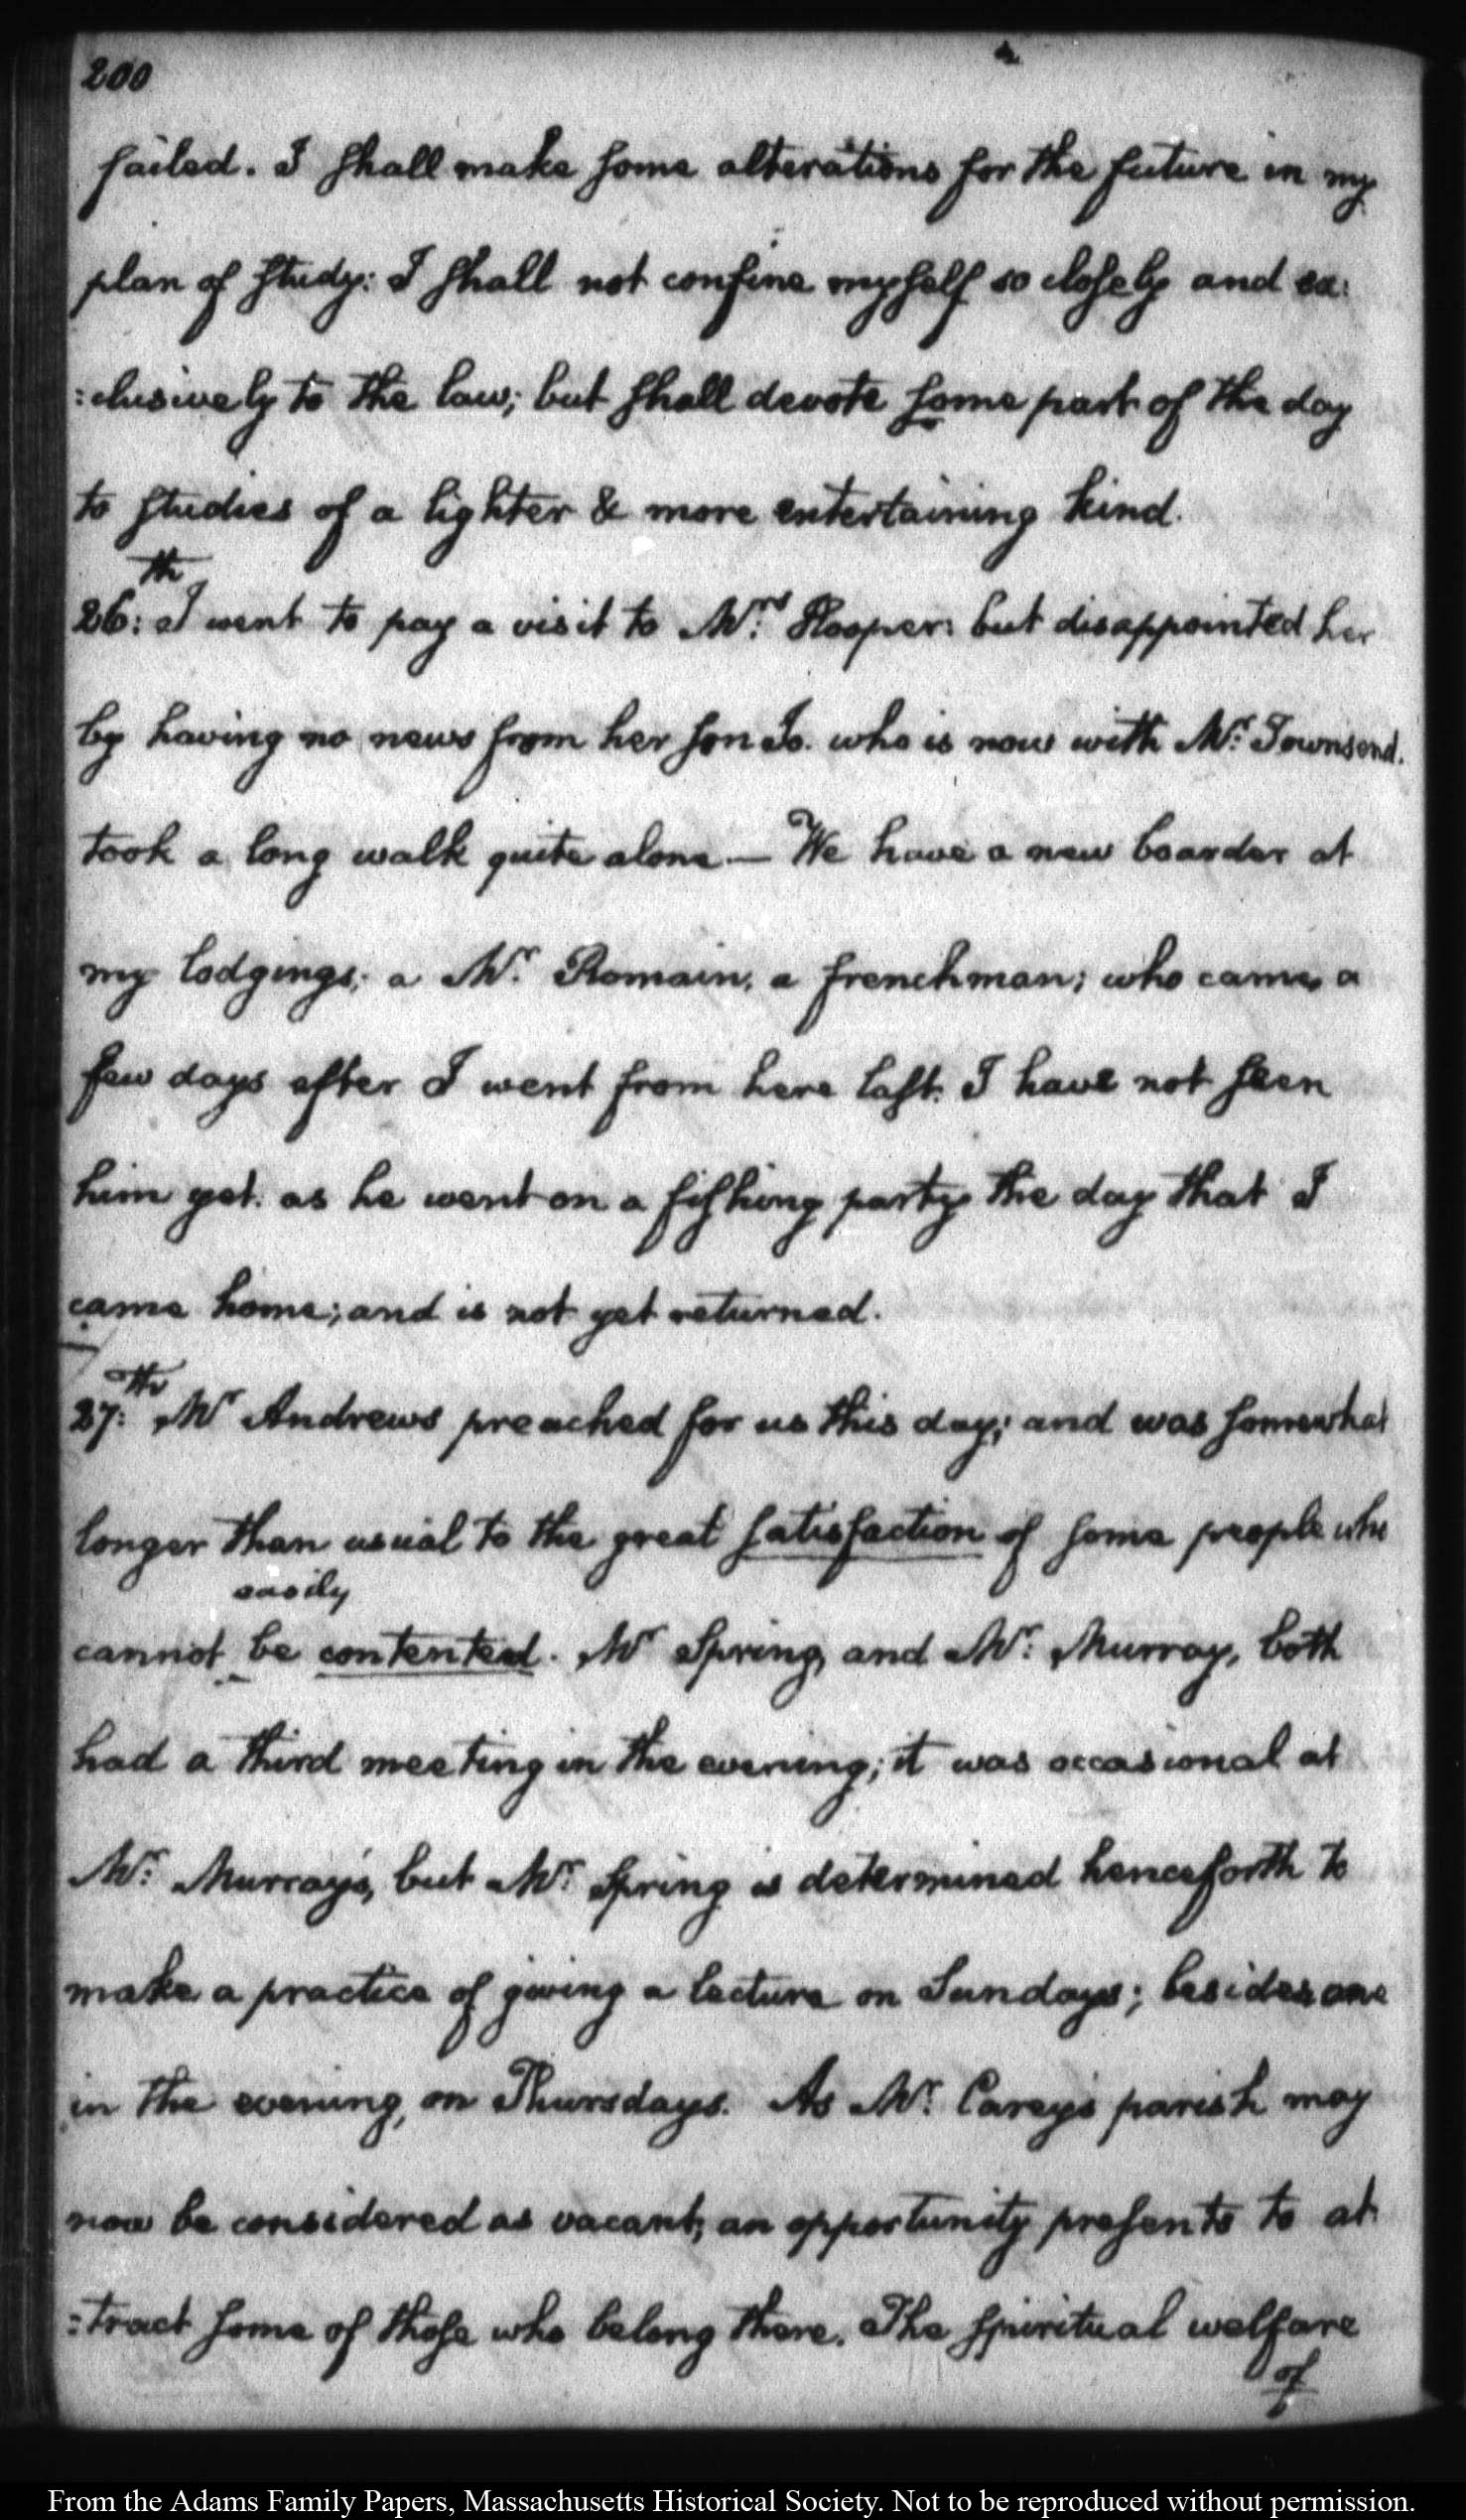 200
failed. I shall make some alterations for the future in my
plan of study: I shall not confine myself so closely and ex:
:clusively to the law; but shall devote some part of the day
to studies of a lighter & more entertaining kind.
26:th I went to pay a visit to Mrs. Hooper: but disappointed her
by having no news from her son Jo. who is now with Mr. Townsend.
took a long walk quite alone.— We have a new boarder at
my lodgings; a Mr. Romain, a frenchman; who came, a
few days after I went from here last. I have not seen
him yet. as he went on a fishing party the day that I
came home; and is not yet returned.
27:th Mr Andrews preached for us this day; and was somewhat
longer than usual to the great satisfaction of some people who
easily
cannot be contented. Mr Spring, and Mr. Murray, both
had a third meeting in the evening; it was occasional at
Mr. Murray's, but Mr. Spring is determined henceforth to
make a practice of giving a lecture on Sundays; besides one
in the evening, on Thursdays. As Mr. Carey's parish may
now be considered as vacant; an opportunity presents to at
:tract some of those who belong there. The spiritual welfare
of
From the Adams Family Papers, Massachusetts Historical Society. Not to be reproduced without permission.